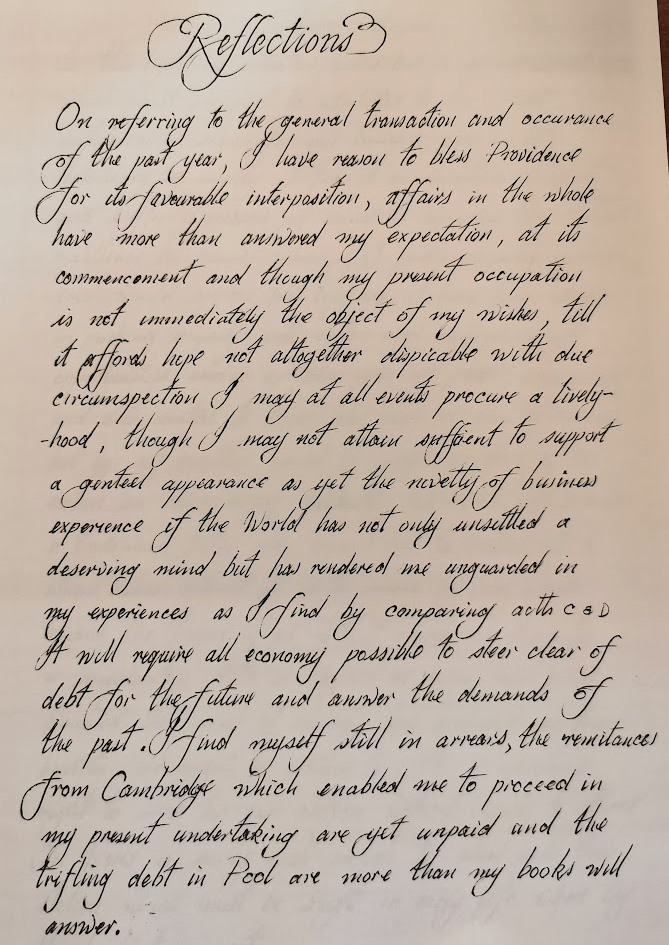 Reflections
On referring to the general transaction and occurance
of the past year, I have reason to bless Providence
for its favourable interposition, affairs in the whole
have more than answered my expectation, at its
commencement and though my present occupation
is not immediately the object of my wishes, till
it affords hope not altogether dispicable with due
circumspection I may at all events procure a lively-
-hood, though I may not attain suffient to support
a genteel appearance as yet the novelty of business
experience if the World has not only unsettled a
deserving mind but has rendered me unguarded in
my experiences as I find by comparing accts C & D
It will require all economy possible to steer clear of
debt for the future and answer the demands of
the past. I find myself still in arrears, the remitances
from Cambridge which enabled me to proceed in
my present undertaking are yet unpaid and the
trifling debt in Pool are more than my books will
answer.